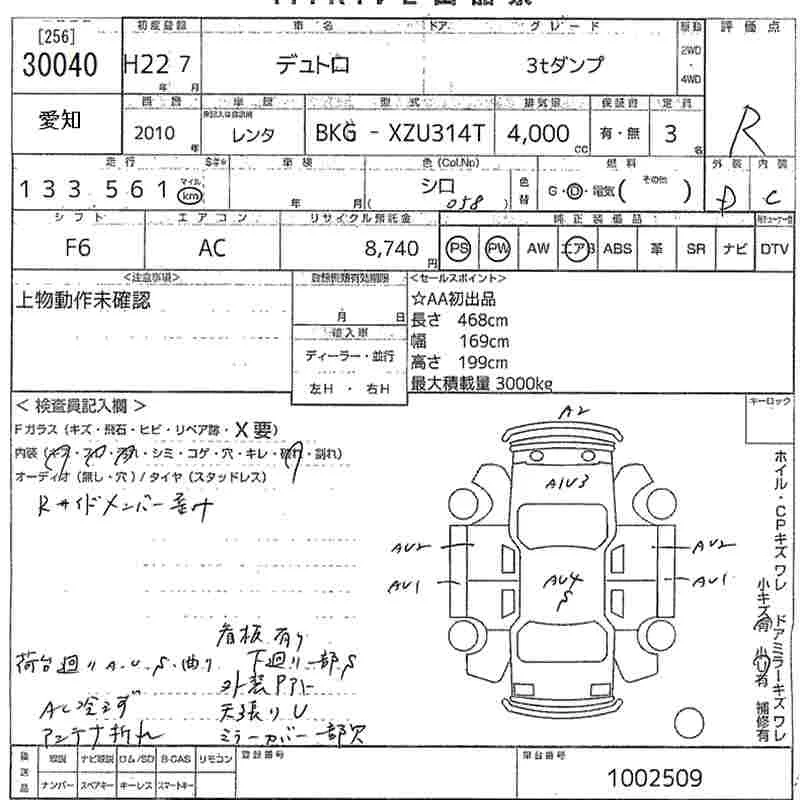 [256]
30040
初度登録
車名
ドア
グレード
評価点
H22 7
年 月
デュトロ
3tダンプ
2WD
・
4WD
愛知
車歴
型式
排気量
保証書
定員
2010
年
レンタ
BKG - XZU314T
4,000
CC
有・無
3
名
R
走行
車検
色(Col.No)
燃料
外装
内装
133,561
マイル
km
年 月
シロ
( 058 )
色替
G・D・電気(その他 )
D
C
シフト
エアコン
リサイクル預託金
純正装備品
F6
AC
8,740
円
PS
PW
AW
エアB
ABS
革
SR
ナビ
DTV
<注意事項>
<セールスポイント>
上物動作未確認
月 日
☆AA初出品
長さ 468cm
輸入車
幅 169cm
ディーラー・並行
高さ 199cm
左H ・ 右H
最大積載量 3000kg
< 検査員記入欄 >
キーロック
Fガラス (キズ・飛石・ヒビ・リペア跡・X要)
オーディオ (無し・穴) / タイヤ (スタッドレス)
Rサイドメンバー歪み
A2
A1U3
AU2
AU2
AU1
AU1
AU4
S
ホイル・CPキズ ワレ
ドアミラーキズ ワレ
小キズ有
小U有
補修有
看板有り
荷台廻りA.U.S.曲り
下廻り一部S
外装PPト
AC冷えず
天張りU
アンテナ折れ
ミラーカバー一部欠
後送品
取説
ナビ取説
ロム/SD
B-CAS
リモコン
登録番号
車台番号
ナンバー
スペアキー
キーレス
スマートキー
1002509